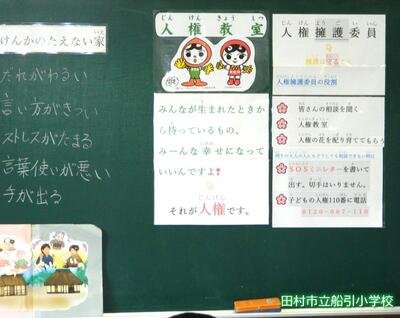 けんかのたえない家
いえ
だれがわるい
言い方がきつい
ストレスがたまる
言葉使いが悪い
手が出る
じんけんきょうしつ
人権教室
みんなが生まれたときか
ら持っているもの、
みーんな幸せになって
いいんですよ!
じんけん
それが人権です。
じんけんようごいいん
人権擁護委員
擁護は守ること
人権擁護委員の役割
皆さんの相談を聞く
人権教室
人権の花を配り育ててもらう
SOSミニレターを書いて
出す。切手はいりません。
子どもの人権110番に電話
0120-007-110
田村市立船引小学校